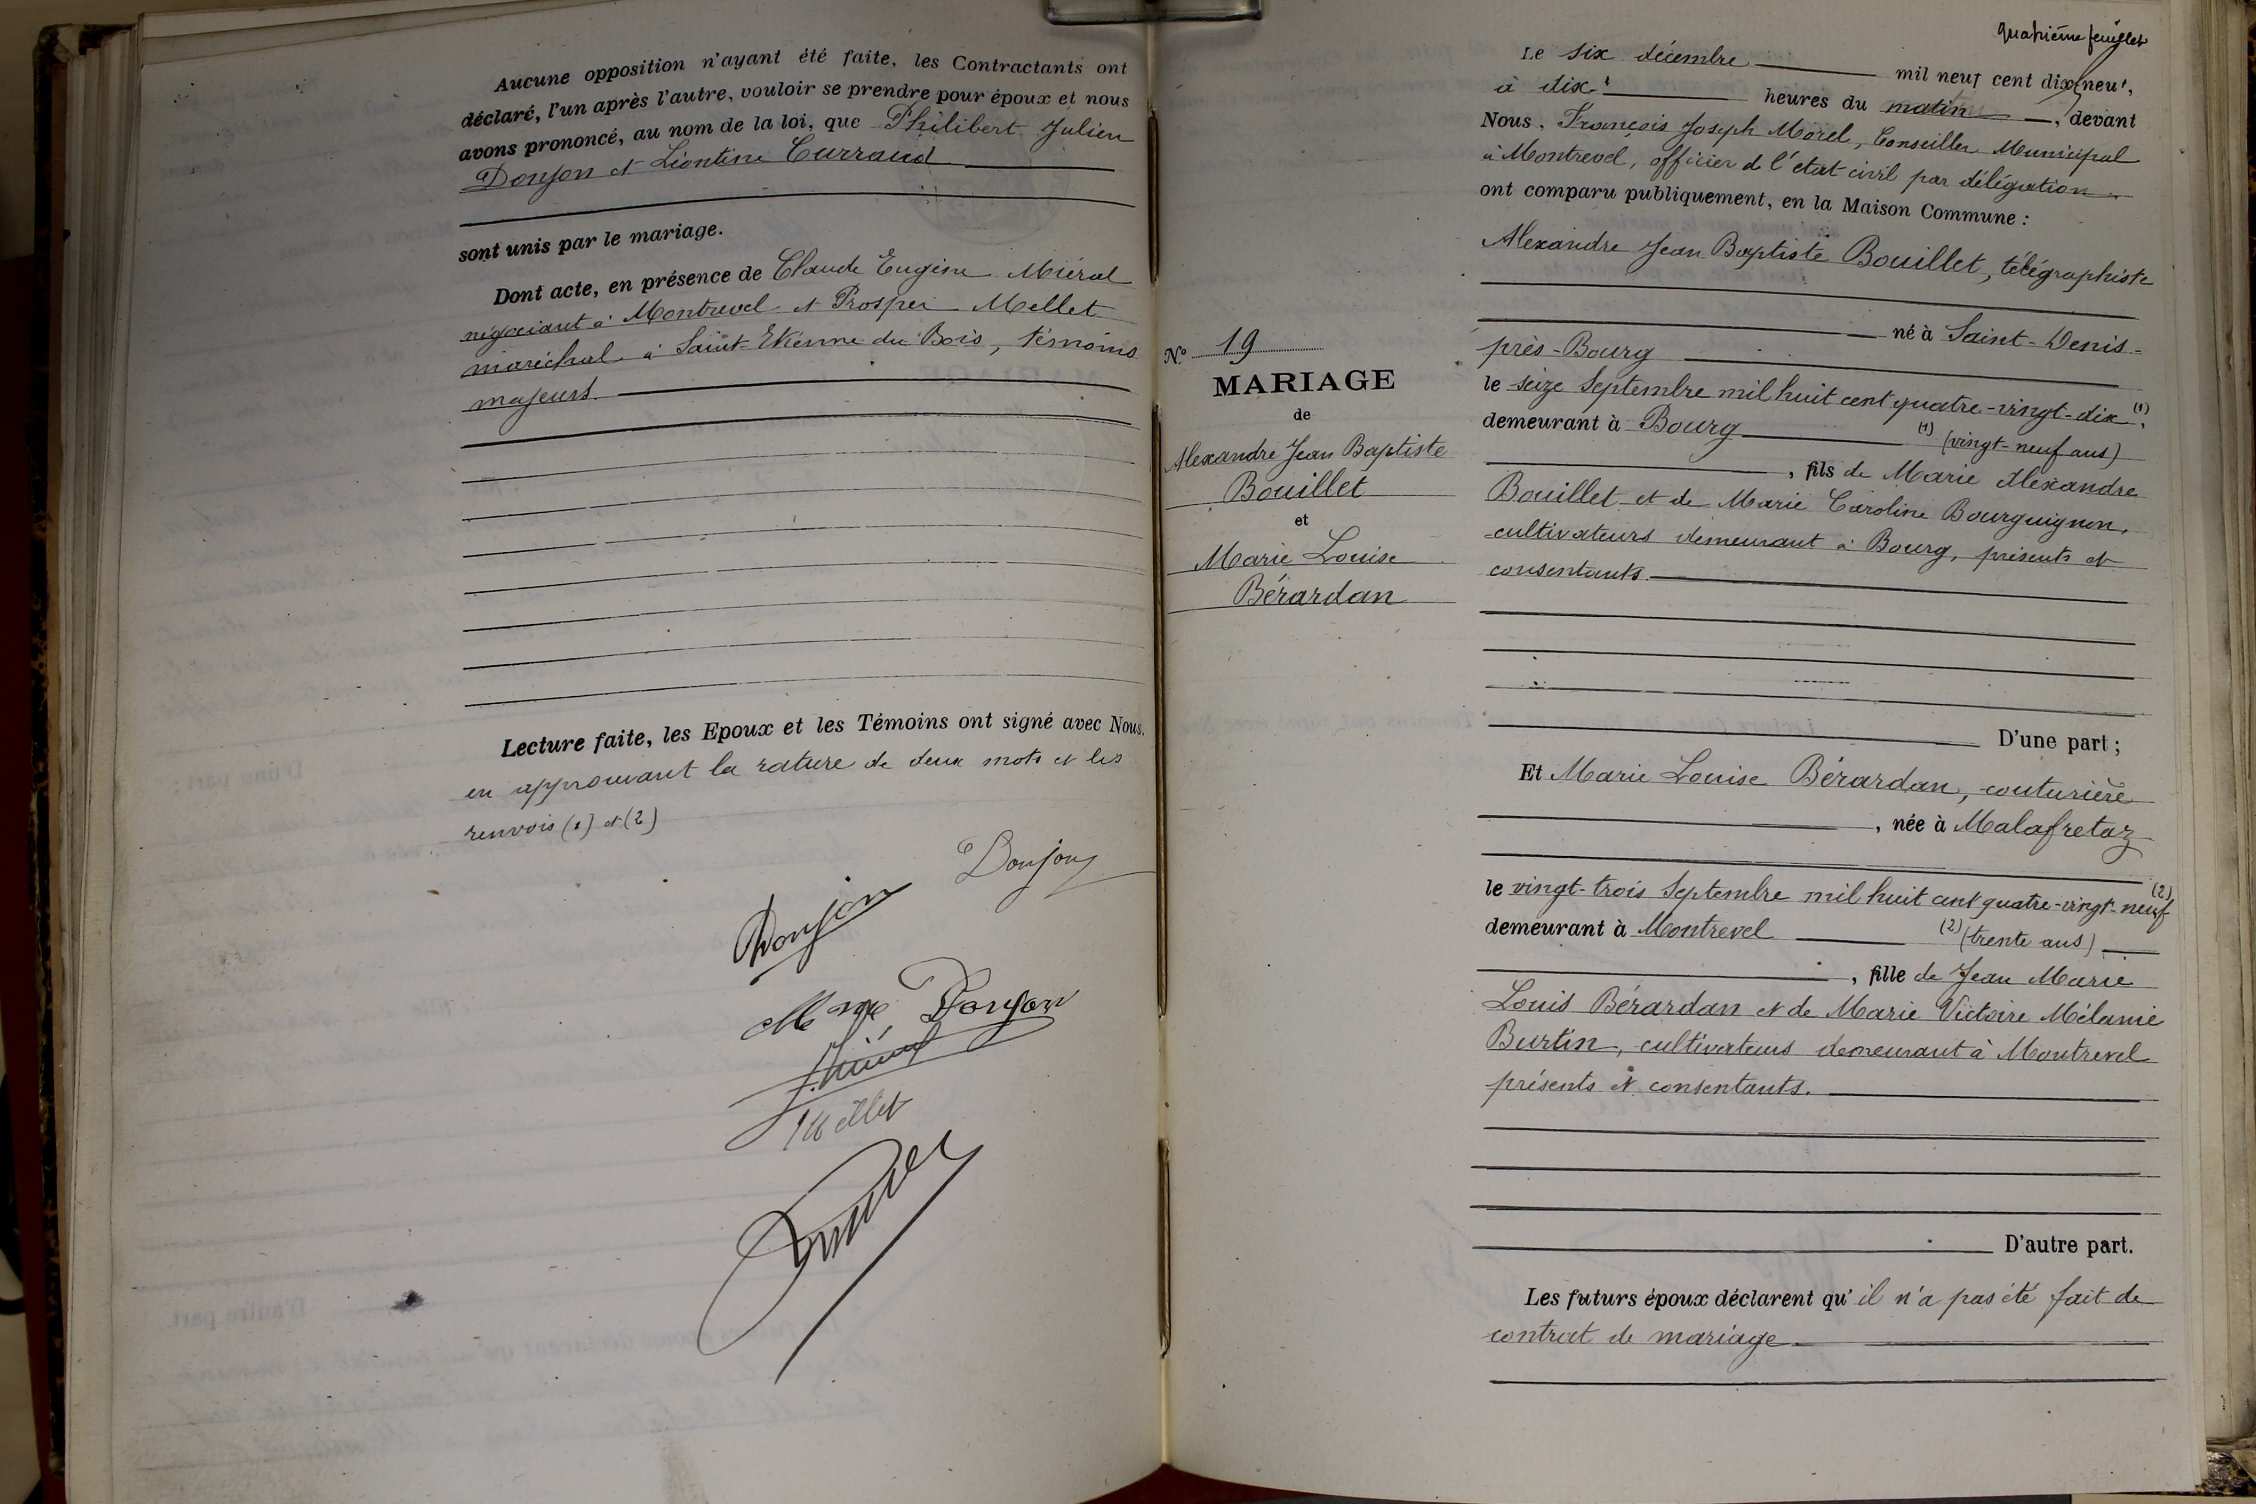 Aucune opposition n'ayant été faite, les Contractants ont
déclaré, l'un après l'autre, vouloir se prendre pour époux et nous
avons prononcé, au nom de la loi, que Philibert Julien
Donjon et Léontine Curraud
sont unis par le mariage.
Dont acte, en présence de Claude Eugène Miéral
négociant à Montrevel et Prosper Mellet
maréchal à Saint-Etienne du Bois, témoins
majeurs.
Lecture faite, les Epoux et les Témoins ont signé avec Nous.
en approuvant la rature de deux mots et les
renvois (1) et (2)
Donjon
Donjon
Mme Donjon
Mellet
quatrième feuillet
Le six décembre mil neuf cent dix neuf,
à dix heures du matin, devant
Nous, François Joseph Morel, Conseiller Municipal
à Montrevel, officier de l'état civil par délégation
ont comparu publiquement, en la Maison Commune :
Alexandre Jean Baptiste Bouillet, télégraphiste
né à Saint-Denis-
près-Bourg
le seize Septembre mil huit cent quatre-vingt-dix (1),
demeurant à Bourg (1) (vingt-neuf ans)
, fils de Marie Alexandre
Bouillet et de Marie Caroline Bourguignon,
cultivateurs demeurant à Bourg, présents et
consentants.
D'une part ;
Et Marie Louise Bérardan, couturière
, née à Malafretaz
le vingt-trois Septembre mil huit cent quatre-vingt-neuf (2)
demeurant à Montrevel (2) (trente ans)
, fille de Jean Marie
Louis Bérardan et de Marie Victoire Mélanie
Burtin, cultivateurs demeurant à Montrevel
présents et consentants.
D'autre part.
Les futurs époux déclarent qu'il n'a pas été fait de
contrat de mariage
N° 19
MARIAGE
de
Alexandre Jean Baptiste
Bouillet
et
Marie Louise
Bérardan